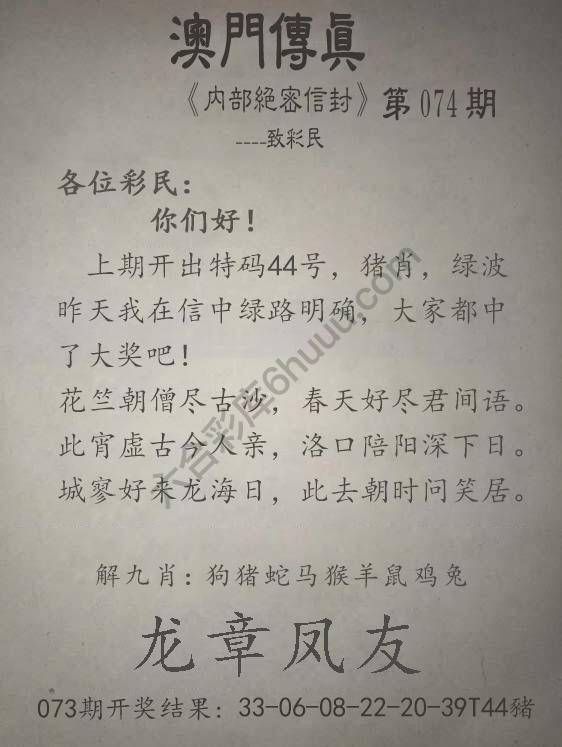 澳門傳眞
《内部絕密信封》第074期
----致彩民
各位彩民：
你们好！
上期开出特码44号，猪肖，绿波
昨天我在信中绿路明确，大家都中
了大奖吧！
花竺朝僧尽古沙，春天好尽君间语。
此宵虚古今人亲，洛口陪阳深下日。
城寥好来龙海日，此去朝时问笑居。
解九肖：狗猪蛇马猴羊鼠鸡兔
龙章凤友
073期开奖结果：33-06-08-22-20-39T44豬
六合彩库6huuu.com